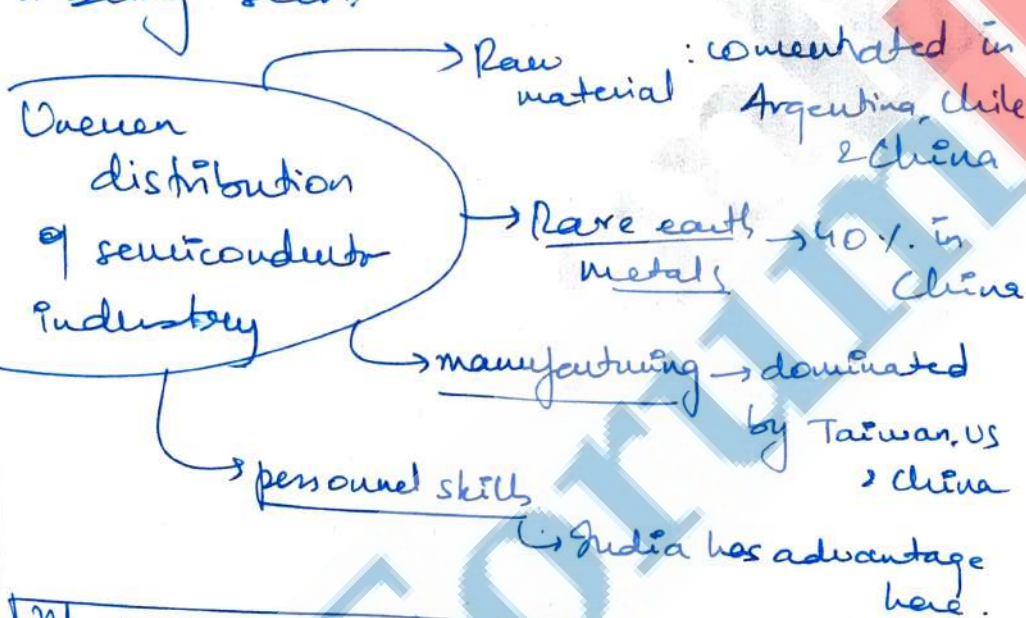 Uneven
distribution
of semiconductor
industry
Raw material : concentrated in
Argentina, Chile
& China
Rare earth metals → 40%. in
China
manufacturing → dominated
by Taiwan, US
& China
personnel skills
↳ India has advantage
here.
Forum